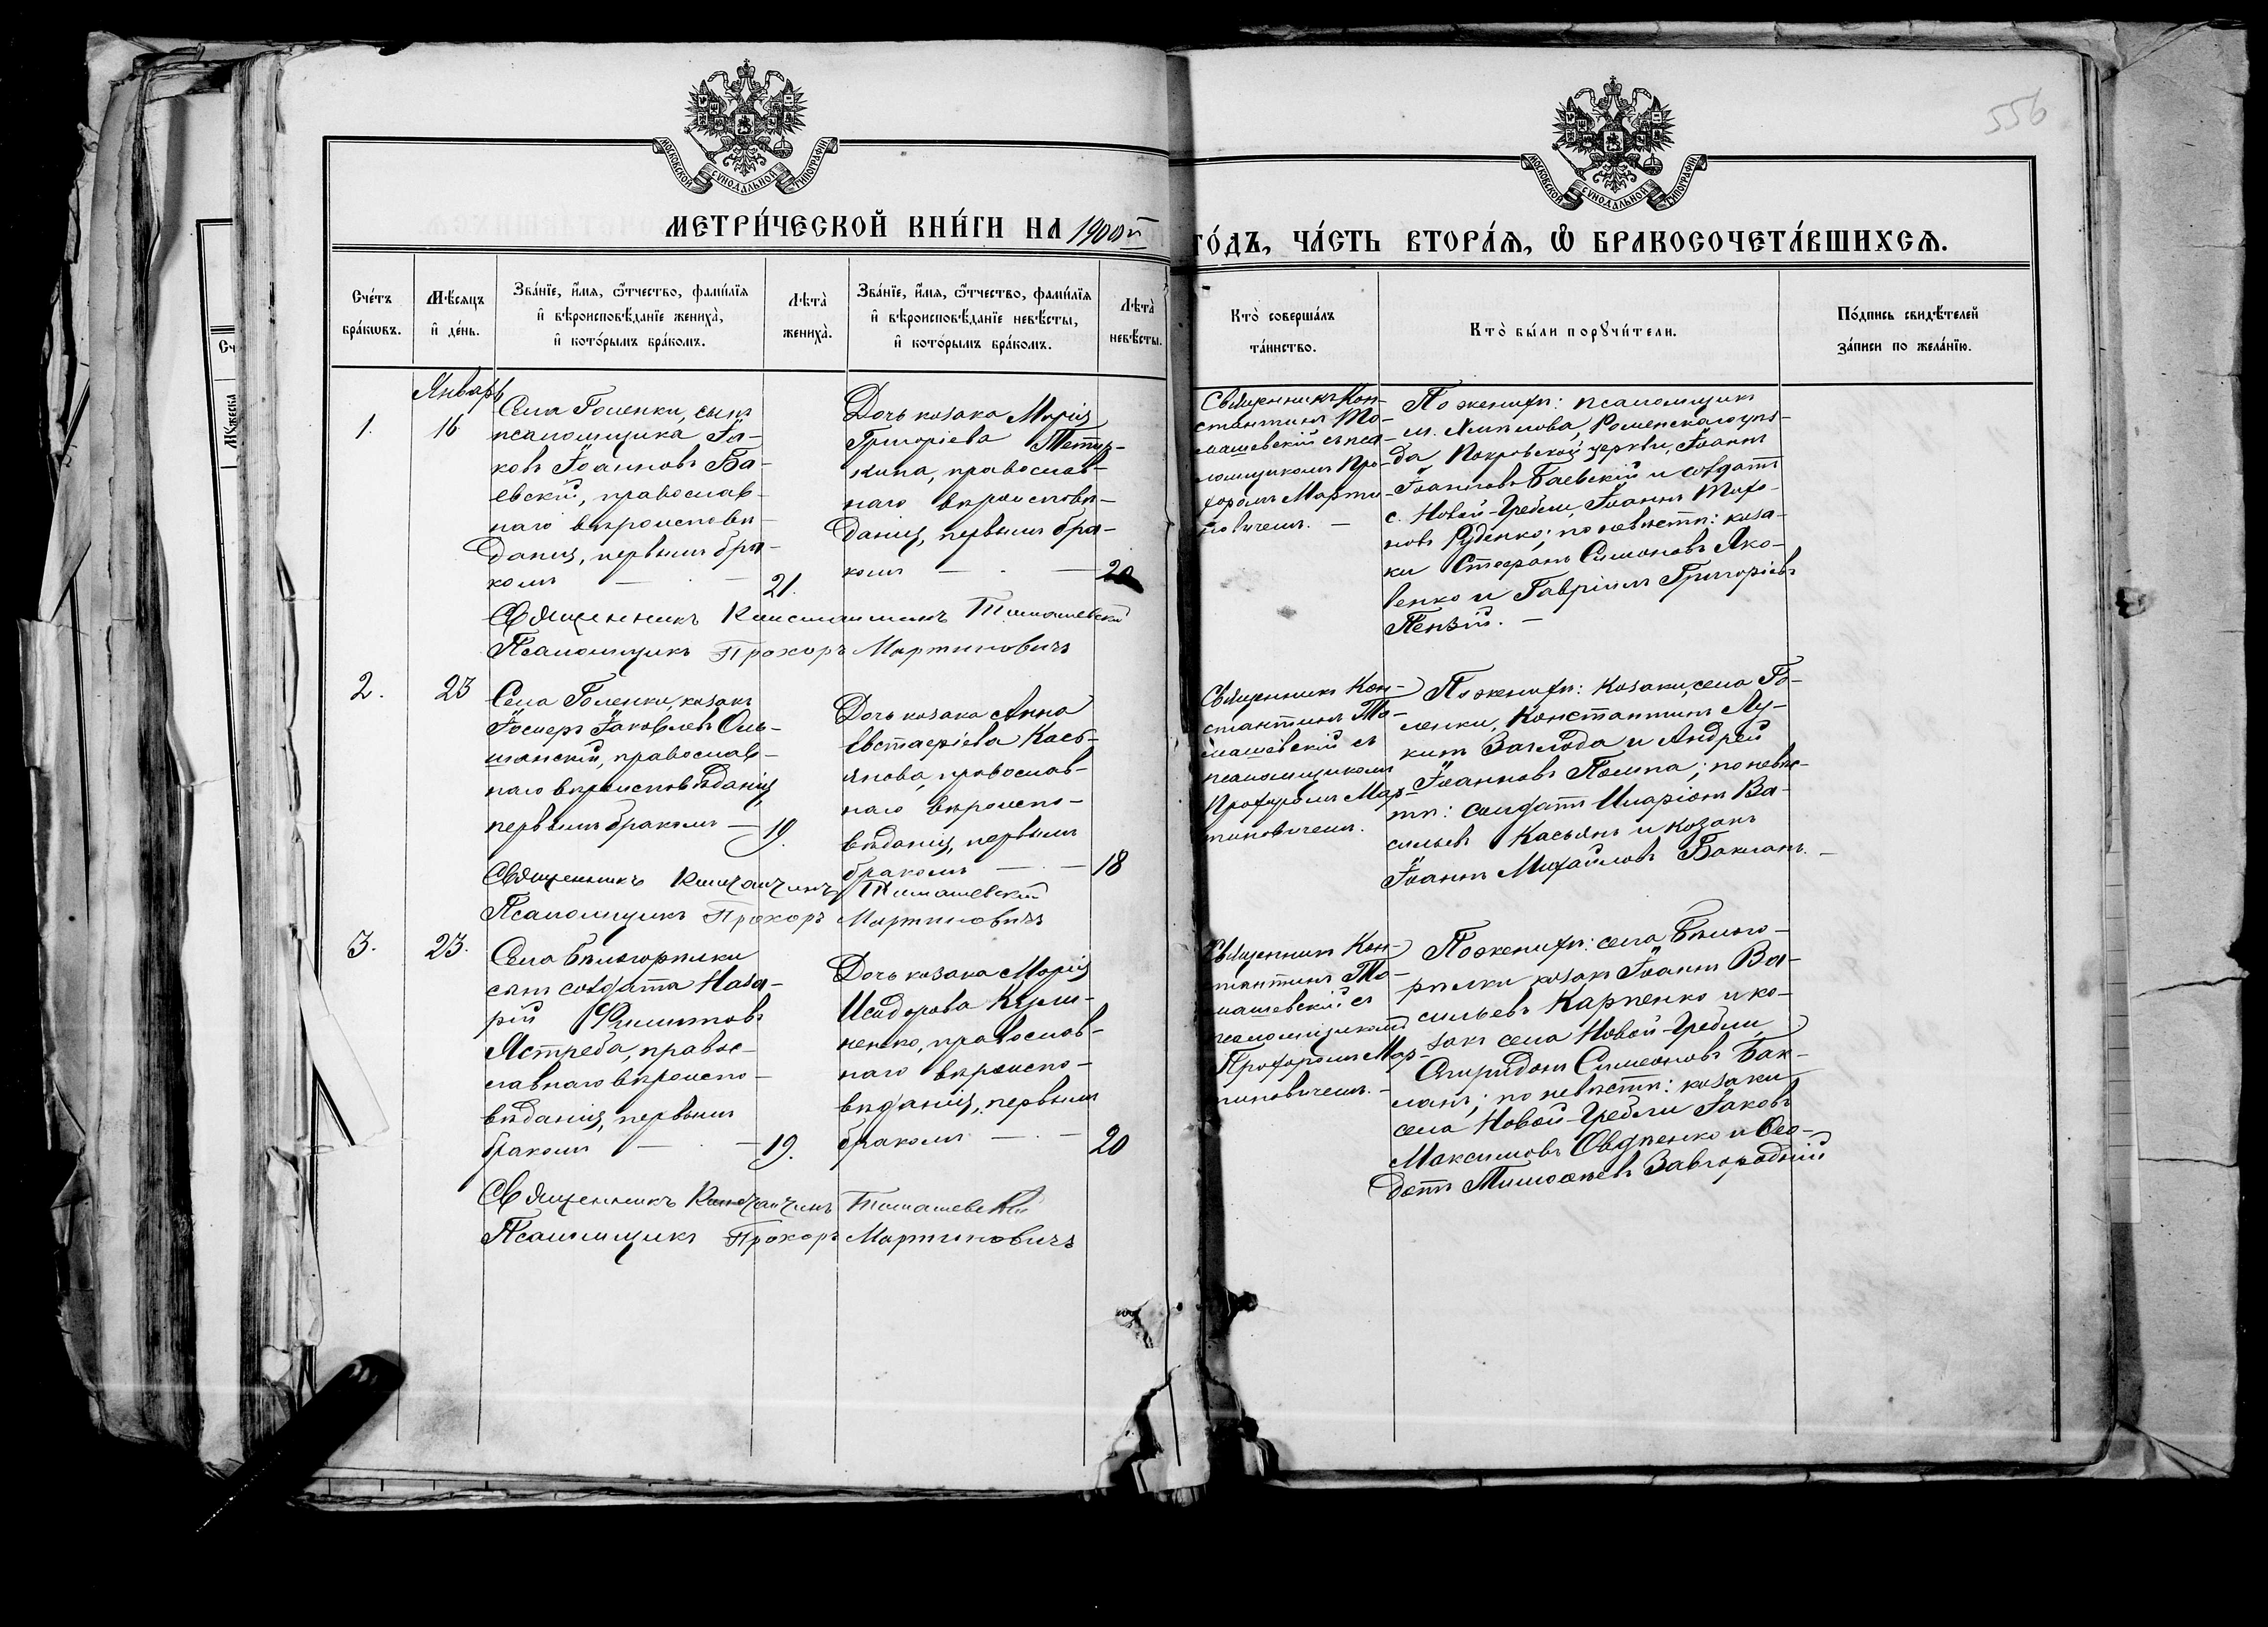 556
МОСКОВСКОЙ СУНОДАЛЬНОЙ ТИПОГРАФІИ
МОСКОВСКОЙ СУНОДАЛЬНОЙ ТИПОГРАФІИ
МЕТРИ́ЧЕСКОЙ КНИ́ГИ НА 1900й
ГО́ДЪ, ЧА́СТЬ ВТОРА́Я, Ѡ БРАКОСОЧЕТА́ВШИХСЯ.
Сче́тъ
бра́кѡвъ.
Мѣ́сяцъ
и҆ де́нь.
Зва́нїе, и҆́мя, ѻ҆́тчество, фами́лїя
и҆ вѣроисповѣ́данїе жениха̀,
и҆ кото́рымъ бра́комъ.
Лѣта̀
жениха̀.
Зва́нїе, и҆́мя, ѻ҆́тчество, фами́лїя
и҆ вѣроисповѣ́данїе невѣ́сты,
и҆ кото́рымъ бра́комъ.
Лѣта̀
невѣ́сты.
Кто̀ соверша́лъ
та́инство.
Кто̀ бы́ли порꙋчи́тели.
По́дпись свидѣ́телей
за́писи по жела́нїю.
Январь
1.
16
Села Голенки, сынъ
псаломщика Іа-
ковъ Іоанновъ Ба-
евскій, православ-
наго вѣроисповѣ-
данія, первымъ бра-
комъ —
21.
Дочь козака Марія
Григоріева
кина, православ-
наго вѣроисповѣ-
данія, первымъ бра-
комъ —
20
Священникъ Кон-
стантинъ То-
машевскій съ пса-
ломщикомъ Про-
хоромъ Марти-
новичемъ. —
По женихѣ: псаломщикъ
м. Роменскаго уѣз-
да, Покровской церкви, Іоаннъ
Іоанновъ Баевскій и солдатъ
с. Новой-Гребли, Іоаннъ Тихо-
новъ Руденко; по невѣстѣ: коза-
ки Стефанъ Симоновъ Яко-
венко и Гавріилъ Григоріевъ
Пензій. —
Священникъ Константинъ Томашевскій
Псаломщикъ Прохоръ Мартиновичъ
2.
23
Села Голенки, козакъ
Іосифъ Іаковлевъ Оль-
шанскій, православ-
наго вѣроисповѣданія,
первымъ бракомъ —
19.
Дочь козака Анна
Евстафіева Кась-
янова, православ-
наго вѣроиспо-
вѣданія, первымъ
бракомъ —
18
Священникъ Кон-
стантинъ То-
машевскій съ
псаломщикомъ
Прохоромъ Мар-
тиновичемъ.
По женихѣ: козаки, села Го-
ленки, Константинъ Лу-
кинъ и Андрей
Іоанновъ Помпа; по невѣс-
тѣ: солдатъ Иларіонъ Ва-
сильевъ Касьянъ и козакъ
Іоаннъ Михайловъ Бакланъ. —
Священникъ Константинъ Томашевскій
Псаломщикъ Прохоръ Мартиновичъ
3.
23.
Села Бѣлогорилки
сынъ солдата Наза-
рій Филипповъ
Ястреба, правос-
лавнаго вѣроиспо-
вѣданія, первымъ
бракомъ —
19.
Дочь козака Марія
Исидорова Кузьми-
ненко, православ-
наго вѣроиспо-
вѣданія, первымъ
бракомъ —
20
Священникъ Кон-
стантинъ То-
машевскій съ
псаломщикомъ
Прохоромъ Мар-
тиновичемъ. —
По женихѣ: села Бѣлого-
рилки козакъ Іоаннъ Ва-
сильевъ Карпенко и ко-
закъ села Новой-Гребли,
Спиридонъ Симеоновъ Бак-
ланъ; по невѣстѣ: козаки
села Новой-Гребли Іаковъ
Максимовъ Овдѣенко и Ѳео-
дотъ Тимофеевъ Завгородній
Священникъ Константинъ Томашевскій
Псаломщикъ Прохоръ Мартиновичъ